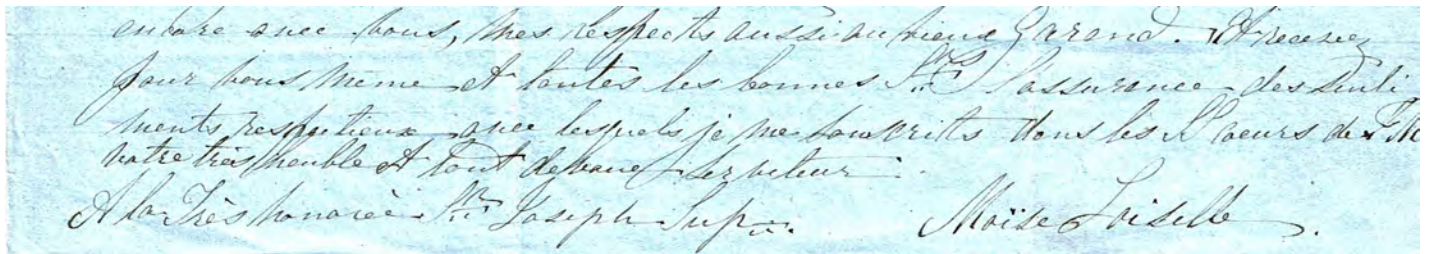 encore avec vous, mes respects aussi au vieux Garand. Et recevez
pour vous même et toutes les bonnes Srs l'assurance des senti
ments respectieux avec lesquels je me souscrits dans les S. coeurs de
votre très humble et tout dévoué serviteur.
A la Très honorée Sr Joseph Supr. Moïse Loiselle.